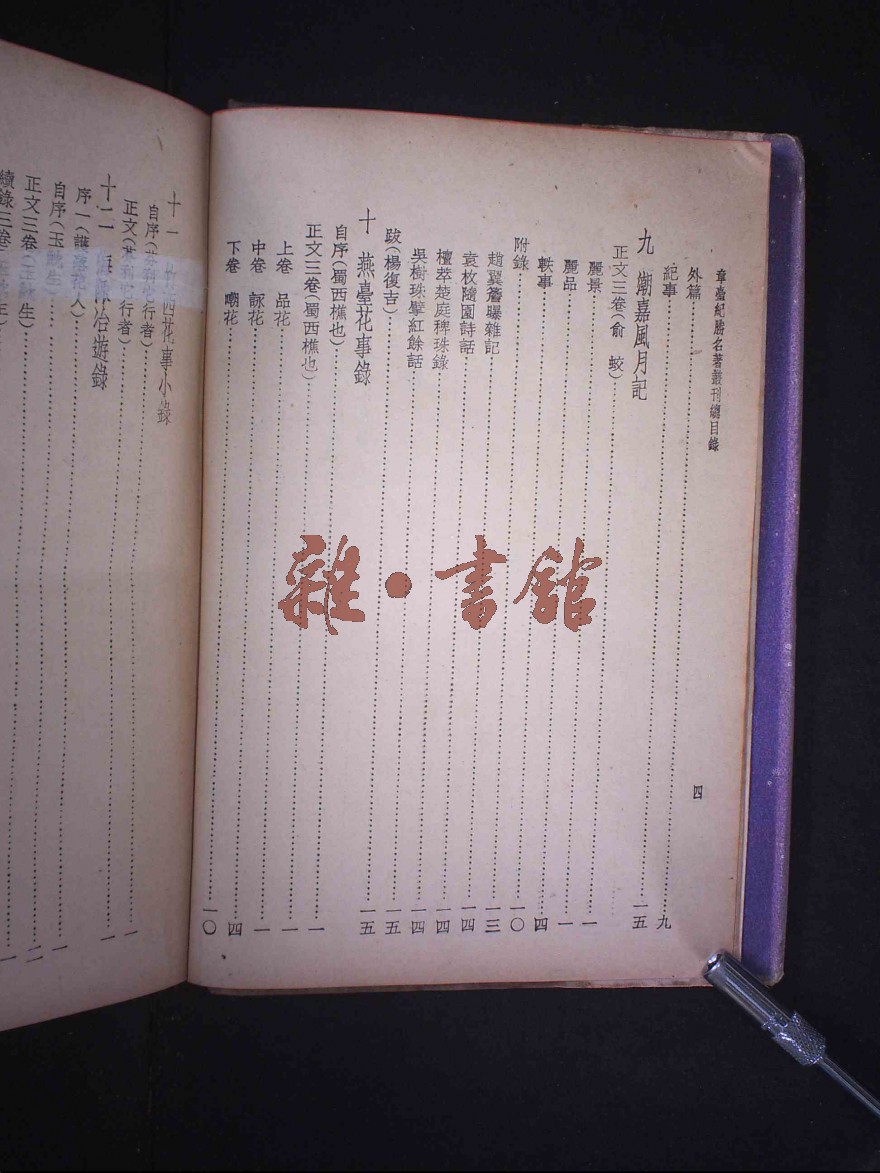 章臺紀勝名著叢刊總目錄
四
外篇……九
紀事……一五
九 潮嘉風月記
正文三卷(俞 蛟)……一
麗景……一
麗品……四
軼事……一〇
附錄……一三
趙翼簷曝雜記……一四
袁枚隨園詩話……一四
檀萃楚庭稗珠錄……一四
吳樹珠擘紅餘話……一五
跋(楊復吉)……一五
十 燕臺花事錄
自序(蜀西樵也)……一
正文三卷(蜀西樵也)……一
上卷 品花……一
中卷 詠花……四
下卷 嘲花……一〇
十一 竹西花事小錄
自序(行者)……一
正文(行者)……一
十二 冶遊錄
序一(人)……一
自序(玉生)……一
正文三卷(生)……一
續錄三卷
雜·書館